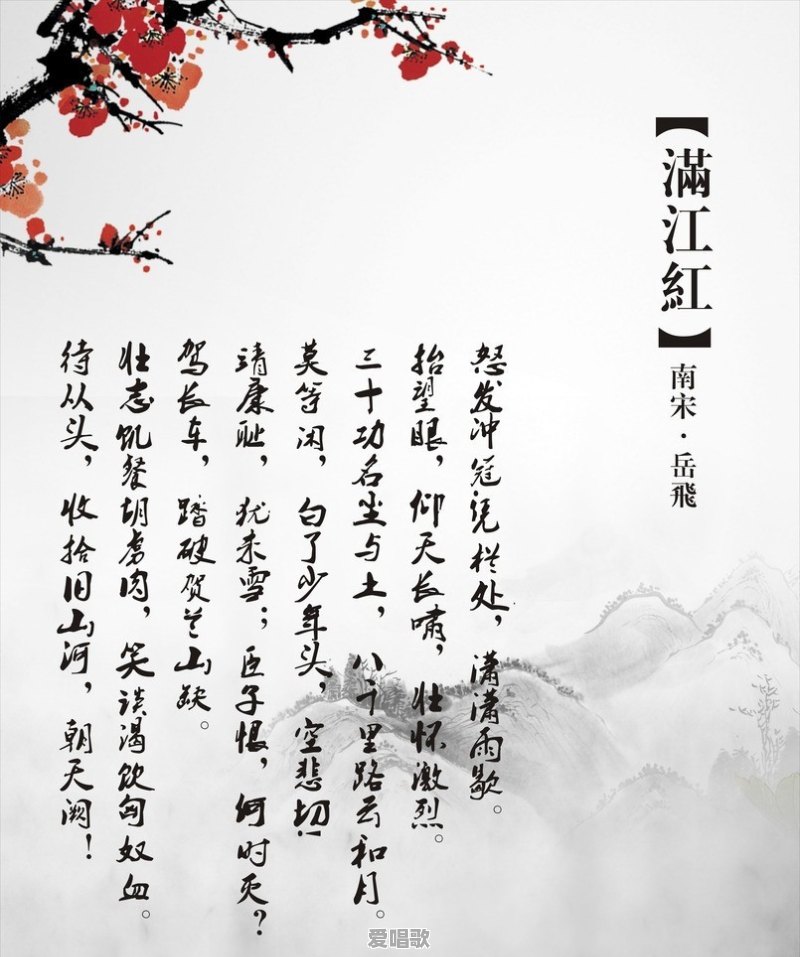 【滿江紅】
南宋·岳飛
怒发冲冠凭栏处，潇潇雨歇。
抬望眼，仰天长啸，壮怀激烈。
三十功名尘与土，八千里路云和月。
莫等闲，白了少年头，空悲切！
靖康耻，犹未雪；臣子恨，何时灭？
驾长车，踏破贺兰山缺。
壮志饥餐胡虏肉，笑谈渴饮匈奴血。
待从头，收拾旧山河，朝天阙！
爱唱歌